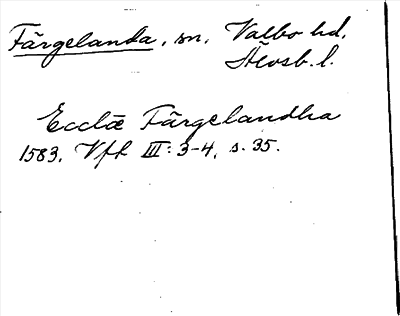 Färgelanda, sn, Valbo hd,
Älvsb. l.
Ecclæ Färgelandha
1583. Vfh III: 3-4, s. 35.